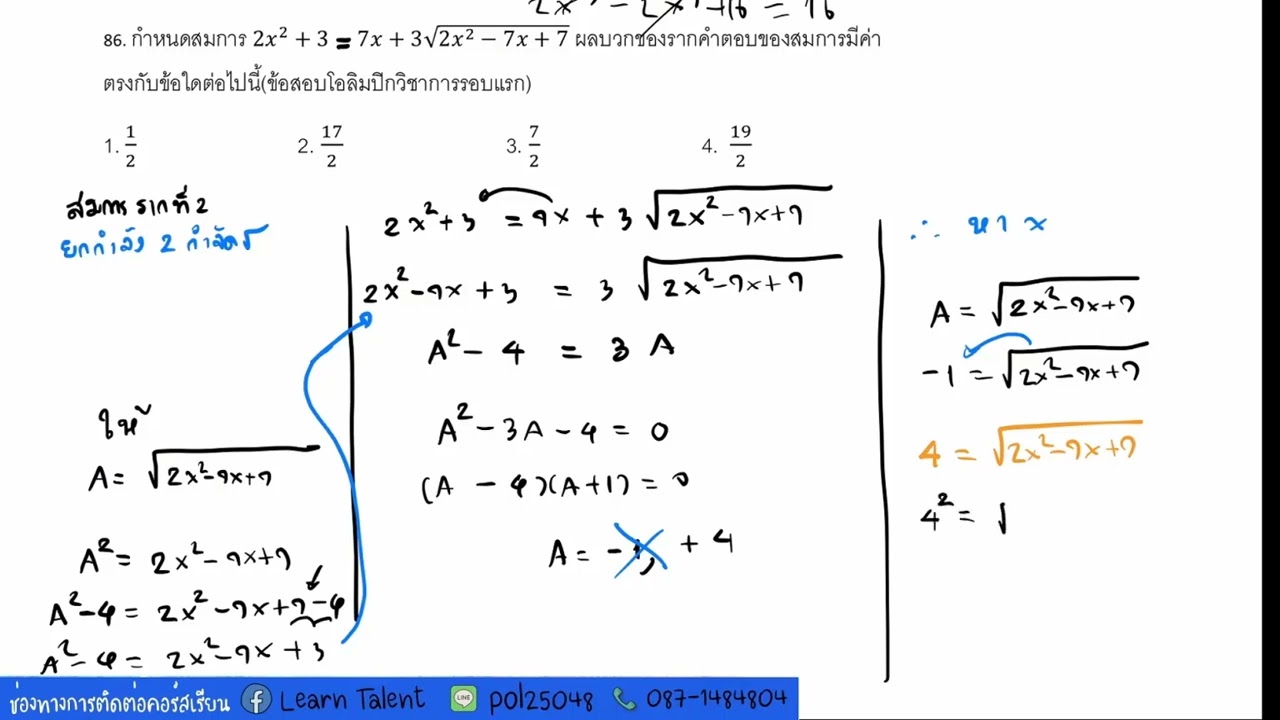 2x² - 2x +16 = 16
86. กำหนดสมการ 2x² + 3 = 7x + 3√(2x² − 7x + 7) ผลบวกของรากคำตอบของสมการมีค่า
ตรงกับข้อใดต่อไปนี้(ข้อสอบโอลิมปิกวิชาการรอบแรก)
1. 1/2 2. 17/2 3. 7/2 4. 19/2
สมการ รากที่ 2
ยกกำลัง 2 กำจัด √
ให้
A = √(2x²-7x+7)
A² = 2x² - 7x+7
A²-4 = 2x² -7x+7-4
A²-4 = 2x²-7x +3
2x²+3 = 7x + 3 √(2x²-7x+7)
2x²-7x +3 = 3 √(2x²-7x+7)
A² - 4 = 3 A
A² - 3A - 4 = 0
(A - 4)(A+1) = 0
A = -1, + 4
∴ หา x
A = √(2x²-7x+7)
-1 = √(2x²-7x+7)
4 = √(2x²-7x+7)
4² = √
ช่องทางการติดต่อคอร์สเรียน Learn Talent LINE pol25048 087-1484804